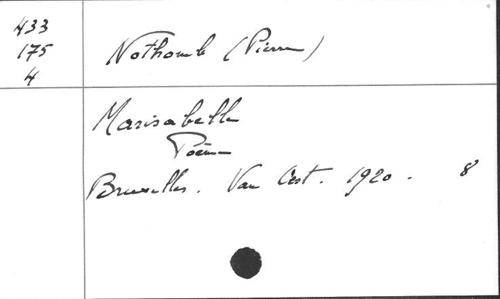 433
175
4
Nothomb (Pierre)
Marisabelle
Poème
Bruxelles. Van Oest. 1920. 8